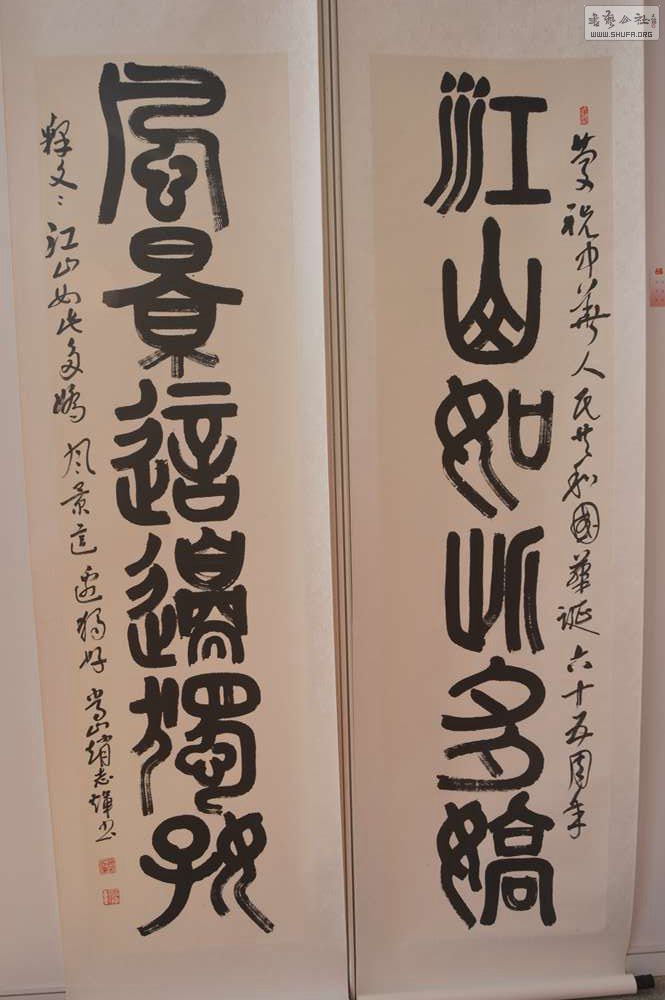 慶祝中華人民共和國華誕六十五周年
江山如此多嬌
風景這邊獨好
釋文：江山如此多嬌 風景這邊獨好 嵩山趙志輝書
書藝公社
WWW.SHUFA.ORG